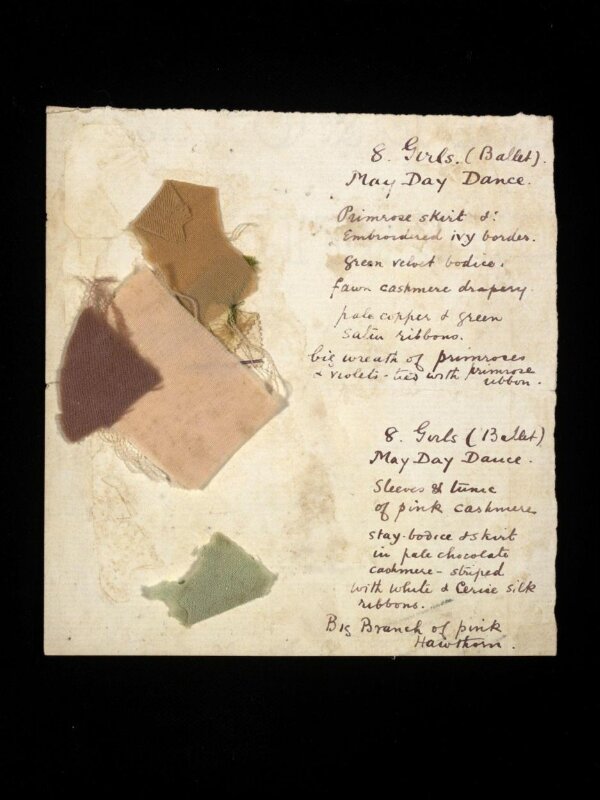 8. Girls. (Ballet).
May Day Dance.
Primrose skirt &:
Embroidered ivy border.
Green velvet bodice.
fawn cashmere drapery.
pale copper & green
Satin ribbons.
big wreath of primroses
& violets - tied with primrose
ribbon.
8. Girls (Ballet)
May Day Dance.
Sleeves & tunic
of pink cashmere
stay-bodice & skirt
in pale chocolate
cashmere - striped
with white & Cerise silk
ribbons.
Big Branch of pink
Hawthorn.